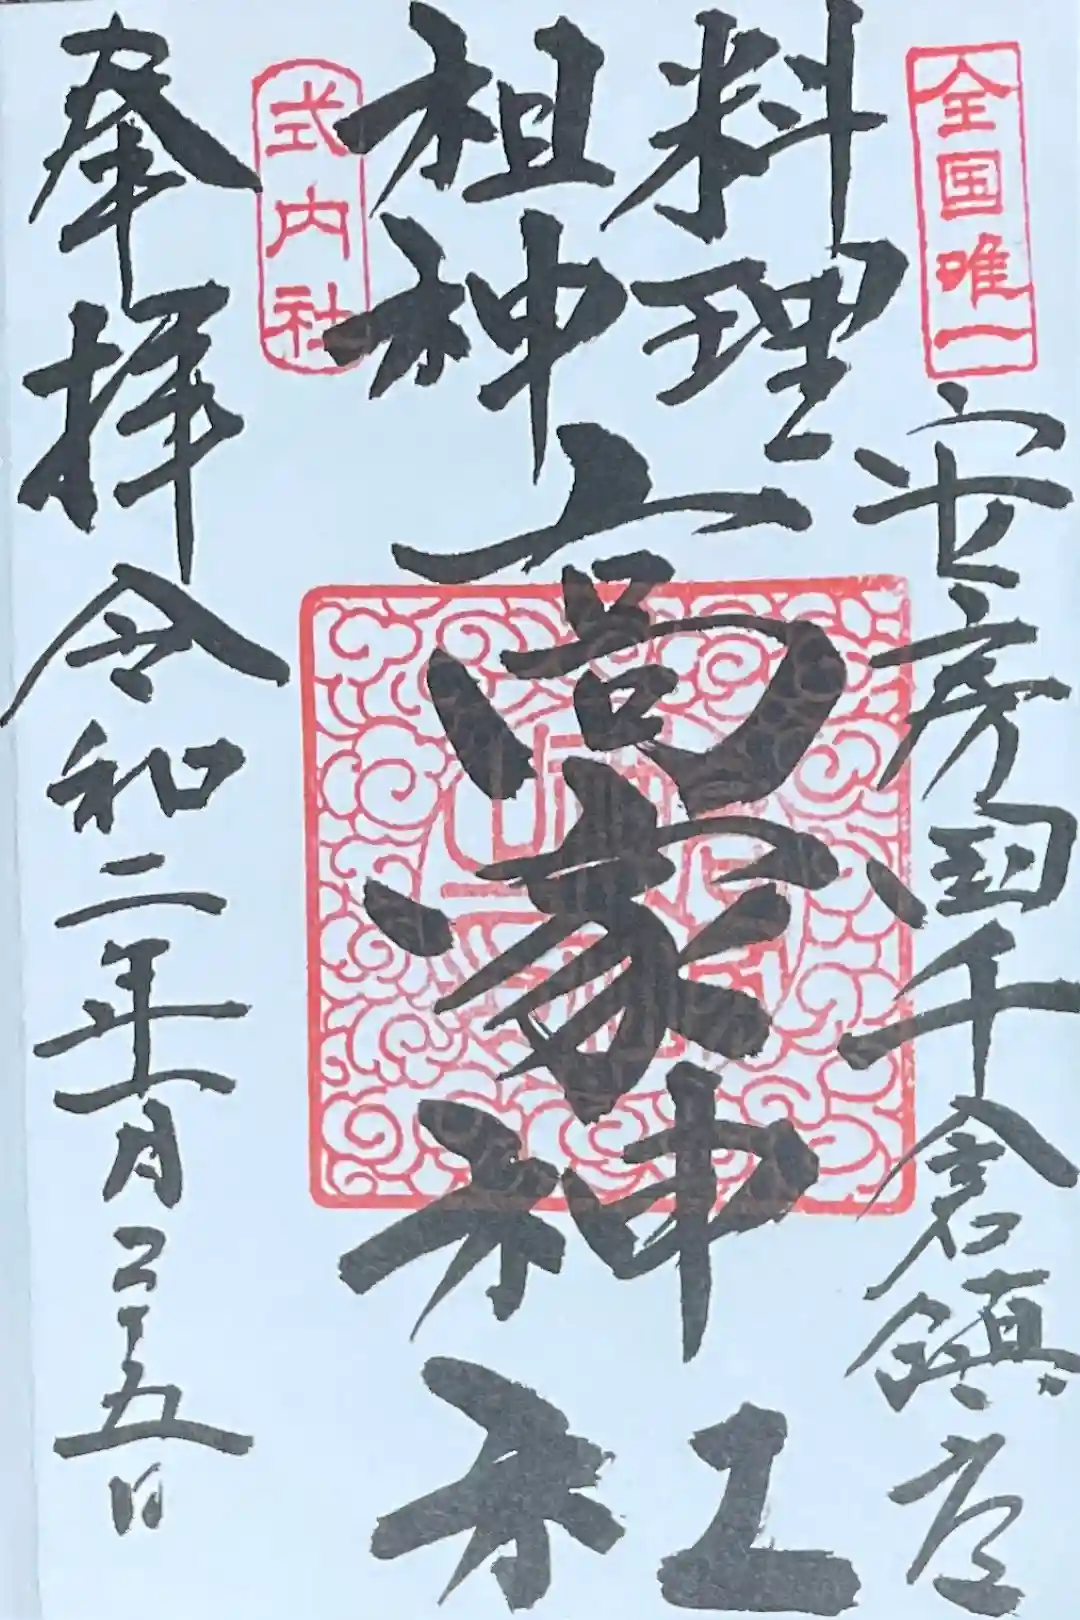 全国唯一
安房国千倉鎮座
料理
祖神
高家神社
式内社
奉拝
令和二年一月二十五日